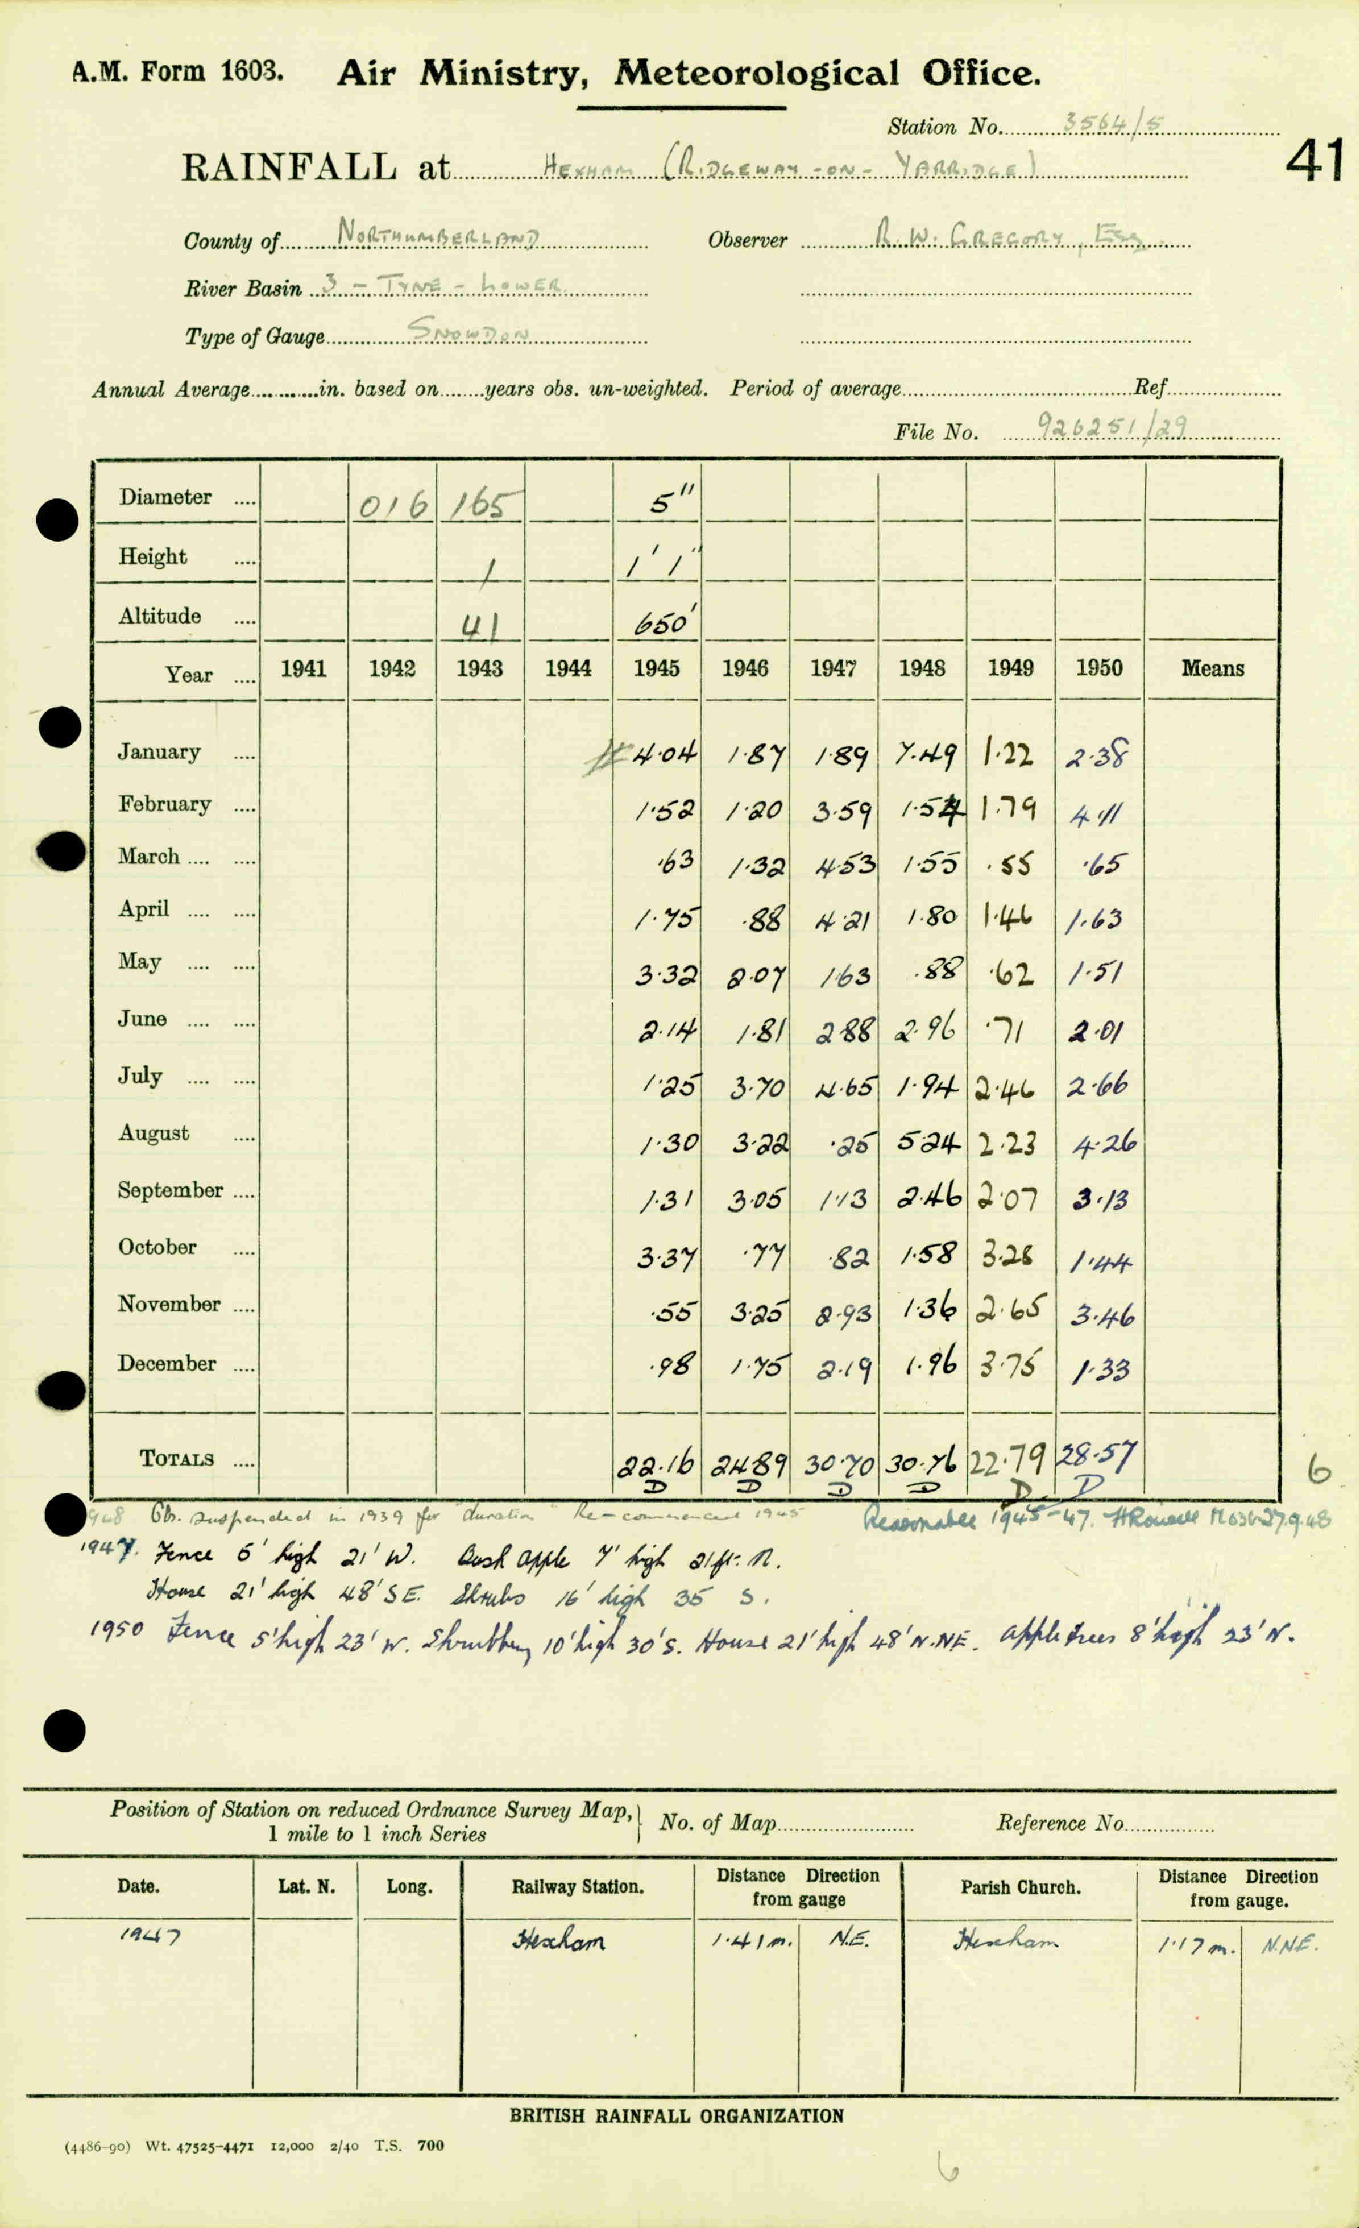 A.M. Form 1603. Air Ministry, Meteorological Office.
Station No. 3564/5
41
RAINFALL at HEXHAM (RIDGEWAY-ON-YARRIDGE)
County of NORTHUMBERLAND Observer R.W. GREGORY, Esq.
River Basin 3 - TYNE - LOWER
Type of Gauge SNOWDON
Annual Average in. based on years obs. un-weighted. Period of average Ref.
File No. 926251/29
Diameter 016 165 5"
Height 1 1' 1"
Altitude 41 650'
Year 1941 1942 1943 1944 1945 1946 1947 1948 1949 1950 Means
January 4.04 1.87 1.89 7.49 1.22 2.38
February 1.52 1.20 3.59 1.54 1.79 4.11
March .63 1.32 4.53 1.55 .55 .65
April 1.75 .88 4.21 1.80 1.46 1.63
May 3.32 2.07 1.63 .88 .62 1.51
June 2.14 1.81 2.88 2.96 .71 2.01
July 1.25 3.70 4.65 1.94 2.46 2.66
August 1.30 3.22 .25 5.24 2.23 4.26
September 1.31 3.05 1.13 2.46 2.07 3.13
October 3.37 .77 .82 1.58 3.28 1.44
November .55 3.25 2.93 1.36 2.65 3.46
December .98 1.75 2.19 1.96 3.75 1.33
TOTALS 22.16 24.89 30.70 30.76 22.79 28.57
D D D D D D
6
1948 Obs. suspended in 1939 for "duration" Re-commenced 1945 Reasonable 1945-47. 27.9.48
1947. Fence 5' high 21' W. Bush apple 7' high 21 ft. N.
House 21' high 48' SE. Shrubs 16' high 35 S.
1950 Fence 5' high 23' W. Shrubbery 10' high 30' S. House 21' high 48' N.NE. apple trees 8' high 23' N.
Position of Station on reduced Ordnance Survey Map, 1 mile to 1 inch Series No. of Map Reference No.
Date. Lat. N. Long. Railway Station. Distance Direction from gauge Parish Church. Distance Direction from gauge.
1947 Hexham 1.41 m. N.E. Hexham 1.17 m. N.NE.
BRITISH RAINFALL ORGANIZATION
(4486-90) Wt. 47525-4471 12,000 2/40 T.S. 700
6